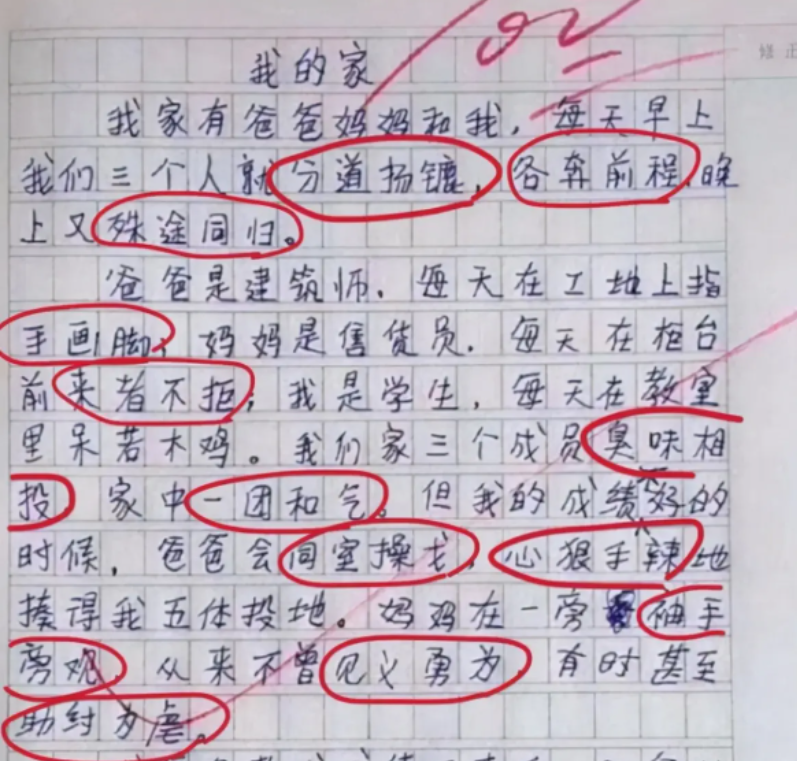 92
修正
我的家
我家有爸爸妈妈和我，每天早上
我们三个人就分道扬镳，各奔前程，晚
上又殊途同归。
爸爸是建筑师，每天在工地上指
手画脚；妈妈是售货员，每天在柜台
前来者不拒；我是学生，每天在教室
里呆若木鸡。我们家三个成员臭味相
投，家中一团和气。但我的成绩不好的
时候，爸爸会同室操戈，心狠手辣地
揍得我五体投地。妈妈在一旁袖手
旁观，从来不曾见义勇为，有时甚至
助纣为虐。